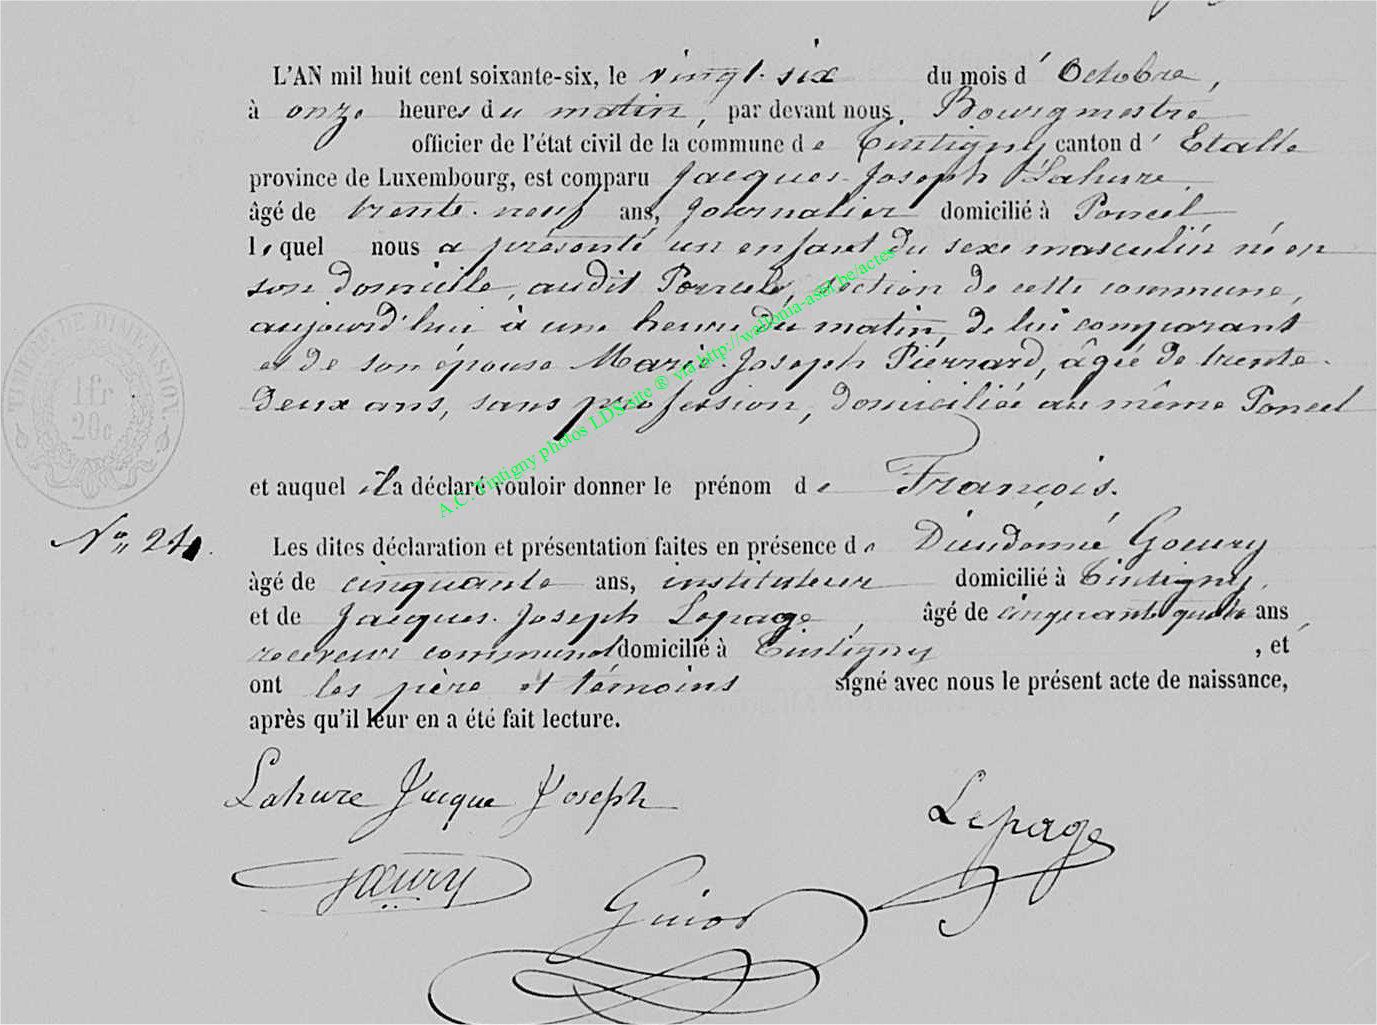 L'AN mil huit cent soixante-six, le vingt-six du mois d' Octobre,
à onze heures du matin, par devant nous, Bourgmestre
officier de l'état civil de la commune de Tintigny canton d' Etalle
province de Luxembourg, est comparu Jacques-Joseph Lahure,
âgé de trente-neuf ans, journalier domicilié à Poncel,
lequel nous a présenté un enfant du sexe masculin né en
son domicile, audit Poncel, section de cette commune,
aujourd'hui à une heure du matin, de lui comparant
et de son épouse Marie-Joseph Piérrard, âgée de trente-
deux ans, sans profession, domiciliée au même Poncel
et auquel il a déclaré vouloir donner le prénom de François.
No 24.
Les dites déclaration et présentation faites en présence de Dieudonné Goeury
âgé de cinquante ans, instituteur domicilié à Tintigny,
et de Jacques-Joseph Lepage, âgé de cinquante-quatre ans,
receveur communal domicilié à Tintigny, et
ont les père et témoins signé avec nous le présent acte de naissance,
après qu'il leur en a été fait lecture.
Lahure Jacque Joseph
Lepage
Goeury
TIMBRE DE DIMENSION.
1fr
20c
A.C. Tintigny photos LDS site ® via http://wallonia-asbl.be/actes